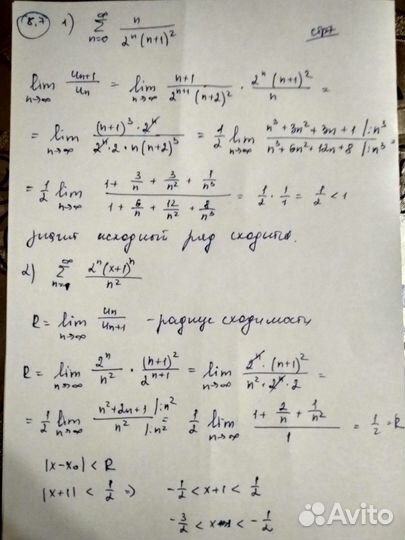 5.7 1) ∑_{n=0}^{∞} n / (2^n (n+1)^2)
lim_{n→∞} u_{n+1}/u_n = lim_{n→∞} (n+1)/(2^{n+1} (n+2)^2) · 2^n (n+1)^2 / n =
= lim_{n→∞} (n+1)^3 · 2^n / (2^n · 2 · n (n+2)^3) = 1/2 lim_{n→∞} (n^3 + 3n^2 + 3n + 1 |:n^3) / (n^3 + 6n^2 + 12n + 8 |:n^3) =
= 1/2 lim_{n→∞} (1 + 3/n + 3/n^2 + 1/n^3) / (1 + 6/n + 12/n^2 + 8/n^3) = 1/2 · 1/1 = 1/2 < 1
значит исходный ряд сходится.
2) ∑^{∞} 2^n (x+1)^n / n^2
R = lim_{n→∞} u_n/u_{n+1} - радиус сходимости
R = lim_{n→∞} 2^n/n^2 · (n+1)^2/2^{n+1} = lim_{n→∞} 2^n · (n+1)^2 / (n^2 · 2^n · 2) =
= 1/2 lim_{n→∞} (n^2 + 2n + 1 |:n^2) / (n^2 |:n^2) = 1/2 lim_{n→∞} (1 + 2/n + 1/n^2) / 1 = 1/2 = R
|x - x_0| < R
|x+1| < 1/2 => -1/2 < x+1 < 1/2
-3/2 < x < -1/2
Avito